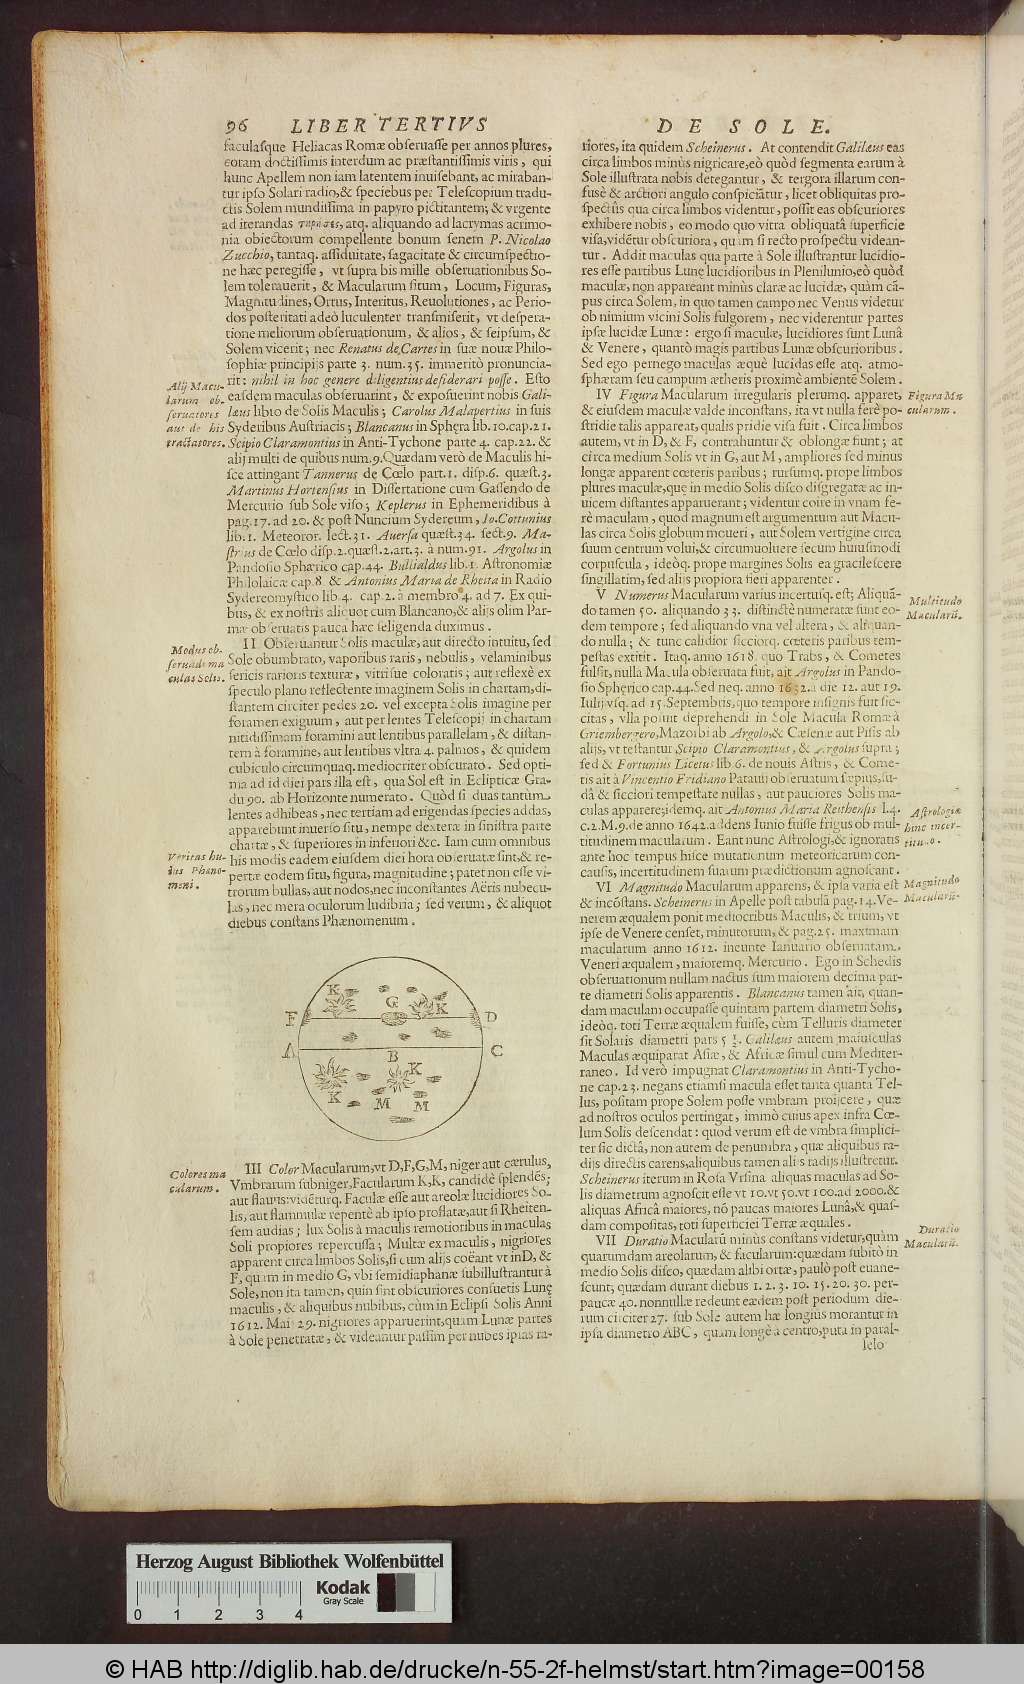 96 LIBER TERTIVS
faculasque Heliacas Romæ obseruasse per annos plures,
coram doctissimis interdum ac præstantissimis viris, qui
hunc Apellem non iam latentem inuisebant, ac miraban-
tur ipso Solari radio, & speciebus per Telescopium tradu-
ctis Solem mundissima in papyro pictitantem; & vrgente
ad iterandas atq. aliquando ad lacrymas acrimo-
nia obiectorum compellente bonum senem P. Nicolao
Zucchio, tantaq. assiduitate, sagacitate & circumspectio-
ne hæc peregisse, vt supra bis mille obseruationibus So-
lem tolerauerit, & Macularum situm, Locum, Figuras,
Magnitudines, Ortus, Interitus, Reuolutiones, ac Perio-
dos posteritati adeò luculenter transmiserit, vt despera-
tione meliorum obseruationum, & alios, & seipsum, &
Solem vicerit; nec Renatus de Cartes in suæ nouæ Philo-
sophiæ principijs parte 3. num. 35. immeritò pronuncia-
rit: nihil in hoc genere diligentius desiderari posse. Esto
Alij Macu-
larum ob-
seruatores
aut de his
tractatores.
easdem maculas obseruarint, & exposuerint nobis Gali-
læus libro de Solis Maculis; Carolus Malapertius in suis
Syderibus Austriacis; Blancanus in Sphęra lib. 10. cap. 21.
Scipio Claramontius in Anti-Tychone parte 4. cap. 22. &
alij multi de quibus num. 9. Quædam verò de Maculis hi-
sce attingant Tannerus de Cœlo part. 1. disp. 6. quæst. 3.
Martinus Hortensius in Dissertatione cum Gassendo de
Mercurio sub Sole viso; Keplerus in Ephemeridibus à
pag. 17. ad 20. & post Nuncium Sydereum, Io. Cottunius
lib. 1. Meteoror. lect. 31. Auersa quæst. 34. sect. 9. Ma-
strius de Cœlo disp. 2. quæst. 2. art. 3. à num. 91. Argolus in
Pandosio Sphærico cap. 44. Bullialdus lib. 1. Astronomiæ
Philolaicæ cap. 8. & Antonius Maria de Rheita in Radio
Sydereomystico lib. 4. cap. 2. à membro 4. ad 7. Ex qui-
bus, & ex nostris aliquot cum Blancano, & alijs olim Par-
mæ obseruatis pauca hæc seligenda duximus.
Modus ob-
seruādi ma
culas Solis.
II Obseruantur Solis maculæ, aut directo intuitu, sed
Sole obumbrato, vaporibus raris, nebulis, velaminibus
sericis rarioris texturæ, vitrisue coloratis; aut reflexè ex
speculo plano reflectente imaginem Solis in chartam, di-
stantem circiter pedes 20. vel excepta Solis imagine per
foramen exiguum, aut per lentes Telescopij in chartam
nitidissimam foramini aut lentibus parallelam, & distan-
tem à foramine, aut lentibus vltra 4. palmos, & quidem
cubiculo circumquaq. mediocriter obscurato. Sed opti-
ma ad id diei pars illa est, qua Sol est in Eclipticæ Gra-
du 90. ab Horizonte numerato. Quòd si duas tantùm
lentes adhibeas, nec tertiam ad erigendas species addas,
apparebunt inuerso situ, nempe dexteræ in sinistra parte
chartæ, & superiores in inferiori &c. Iam cum omnibus
Veritas hu-
ius Phæno-
meni.
his modis eadem eiusdem diei hora obseruatæ sint, & re-
pertæ eodem situ, figura, magnitudine; patet non esse vi-
trorum bullas, aut nodos, nec inconstantes Aëris nubecu-
las, nec mera oculorum ludibria; sed verum, & aliquot
diebus constans Phænomenum.
K
G
K
F
D
A
B
C
K
K
M
M
Colores ma
cularum.
III Color Macularum, vt D, F, G, M, niger aut cærulus,
Vmbrarum subniger, Facularum K, K, candidè splendēs;
aut flauus: vidēturq. Faculæ esse aut areolæ lucidiores So-
lis, aut flammulæ repentè ab ipso proflatæ, aut si Rheiten-
sem audias; lux Solis à maculis remotioribus in maculas
Soli propiores repercussa; Multæ ex maculis, nigriores
apparent circa limbos Solis, si cum alijs coëant vt in D, &
F, quam in medio G, vbi semidiaphanæ subillustrantur à
Sole, non ita tamen, quin sint obscuriores consuetis Lunę
maculis, & aliquibus nubibus, cùm in Eclipsi Solis Anni
1612. Mai 29. nigriores apparuerint, quam Lunæ partes
à Sole penetratæ, & videantur passim per nubes ipsas ra-
DE SOLE.
riores, ita quidem Scheinerus. At contendit Galilæus eas
circa limbos minùs nigricare, eò quòd segmenta earum à
Sole illustrata nobis detegantur, & tergora illarum con-
fusè & arctiori angulo conspiciātur, licet obliquitas pro-
spectûs qua circa limbos videntur, possit eas obscuriores
exhibere nobis, eo modo quo vitra obliquatâ superficie
visa, vidētur obscuriora, quàm si recto prospectu videan-
tur. Addit maculas qua parte à Sole illustrantur lucidio-
res esse partibus Lunę lucidioribus in Plenilunio, eò quòd
maculæ, non appareant minùs claræ ac lucidæ, quàm cā-
pus circa Solem, in quo tamen campo nec Venus videtur
ob nimium vicini Solis fulgorem, nec viderentur partes
ipsæ lucidæ Lunæ: ergo si maculæ, lucidiores sunt Lunâ
& Venere, quantò magis partibus Lunæ obscurioribus.
Sed ego pernego maculas æquè lucidas esse atq. atmo-
sphæram seu campum ætheris proximè ambientē Solem.
IV Figura Macularum irregularis plerumq. apparet,
Figura Ma
cularum.
& eiusdem maculæ valde inconstans, ita vt nulla ferè po-
stridie talis appareat, qualis pridie visa fuit. Circa limbos
autem, vt in D, & F, contrahuntur & oblongæ fiunt; at
circa medium Solis vt in G, aut M, ampliores sed minus
longæ apparent cœteris paribus; rursumq. prope limbos
plures maculæ, quę in medio Solis disco disgregatæ ac in-
uicem distantes apparuerant; videntur coire in vnam fe-
rè maculam, quod magnum est argumentum aut Macu-
las circa Solis globum moueri, aut Solem vertigine circa
suum centrum volui, & circumuoluere secum huiusmodi
corpuscula, ideoq. prope margines Solis ea gracilescere
singillatim, sed alijs propiora fieri apparenter.
V Numerus Macularum varius incertusq. est; Aliquā-
Multitudo
Macularū.
do tamen 50. aliquando 33. distinctè numeratæ sunt eo-
dem tempore; sed aliquando vna vel altera, & aliquan-
do nulla; & tunc calidior sicciorq. cœteris paribus tem-
pestas extitit. Itaq. anno 1618. quo Trabs, & Cometes
fulsit, nulla Macula obseruata fuit, ait Argolus in Pando-
sio Spherico cap. 44. Sed neq. anno 1632. à die 12. aut 19.
Iulij vsq. ad 15. Septembris, quo tempore insignis fuit sic-
citas, vlla potuit deprehendi in Sole Macula Romæ à
Griembergero, Mazorbi ab Argolo, & Cæsenæ aut Pisis ab
alijs, vt testantur Scipio Claramontius, & Argolus supra;
sed & Fortunius Licetus lib 6. de nouis Astris, & Come-
tis ait à Vincentio Fridiano Patauij obseruatum sæpius, su-
dâ & sicciori tempestate nullas, aut pauciores Solis ma-
culas apparere; idemq. ait Antonius Maria Reithensis l. 4.
Astrologiæ
hinc incer-
titudo.
c. 2. M. 9. de anno 1642. addens Iunio fuisse frigus ob mul-
titudinem macularum. Eant nunc Astrologi, & ignoratis
ante hoc tempus hisce mutationum meteoricarum con-
causis, incertitudinem suarum prædictionum agnoscant.
VI Magnitudo Macularum apparens, & ipsa varia est
Magnitudo
Macularū.
& incōstans. Scheinerus in Apelle post tabulā pag. 14. Ve-
nerem æqualem ponit mediocribus Maculis, & trium, vt
ipse de Venere censet, minutorum, & pag. 25. maximam
macularum anno 1612. ineunte Ianuario obseruatam,
Veneri æqualem, maioremq. Mercurio. Ego in Schedis
obseruationum nullam nactus sum maiorem decima par-
te diametri Solis apparentis. Blancanus tamen ait, quan-
dam maculam occupasse quintam partem diametri Solis,
ideòq. toti Terræ æqualem fuisse, cùm Telluris diameter
sit Solaris diametri pars 5 ½. Galilæus autem maiusculas
Maculas æquiparat Asiæ, & Africæ simul cum Mediter-
raneo. Id verò impugnat Claramontius in Anti-Tycho-
ne cap. 23. negans etiamsi macula esset tanta quanta Tel-
lus, positam prope Solem posse vmbram proijcere, quæ
ad nostros oculos pertingat, immò cuius apex infra Cœ-
lum Solis descendat: quod verum est de vmbra simplici-
ter sic dictâ, non autem de penumbra, quæ aliquibus ra-
dijs directis carens, aliquibus tamen alijs radijs illustretur.
Scheinerus iterum in Rosa Vrsina aliquas maculas ad So-
lis diametrum agnoscit esse vt 10. vt 50. vt 100. ad 2000. &
aliquas Africâ maiores, nō paucas maiores Lunâ, & quas-
dam compositas, toti superficiei Terræ æquales.
VII Duratio Macularū minùs constans videtur, quàm
Duratio
Macularū.
quarumdam areolarum, & facularum: quædam subitò in
medio Solis disco, quædam alibi ortæ, paulò post euane-
scunt; quædam durant diebus 1. 2. 3. 10. 15. 20. 30. per-
paucæ 40. nonnullæ redeunt eædem post periodum die-
rum circiter 27. sub Sole autem hæ longiùs morantur in
ipsa diametro ABC, quàm longè à centro, puta in paral-
lelo
Herzog August Bibliothek Wolfenbüttel
Kodak
Gray Scale
0 1 2 3 4
© HAB http://diglib.hab.de/drucke/n-55-2f-helmst/start.htm?image=00158